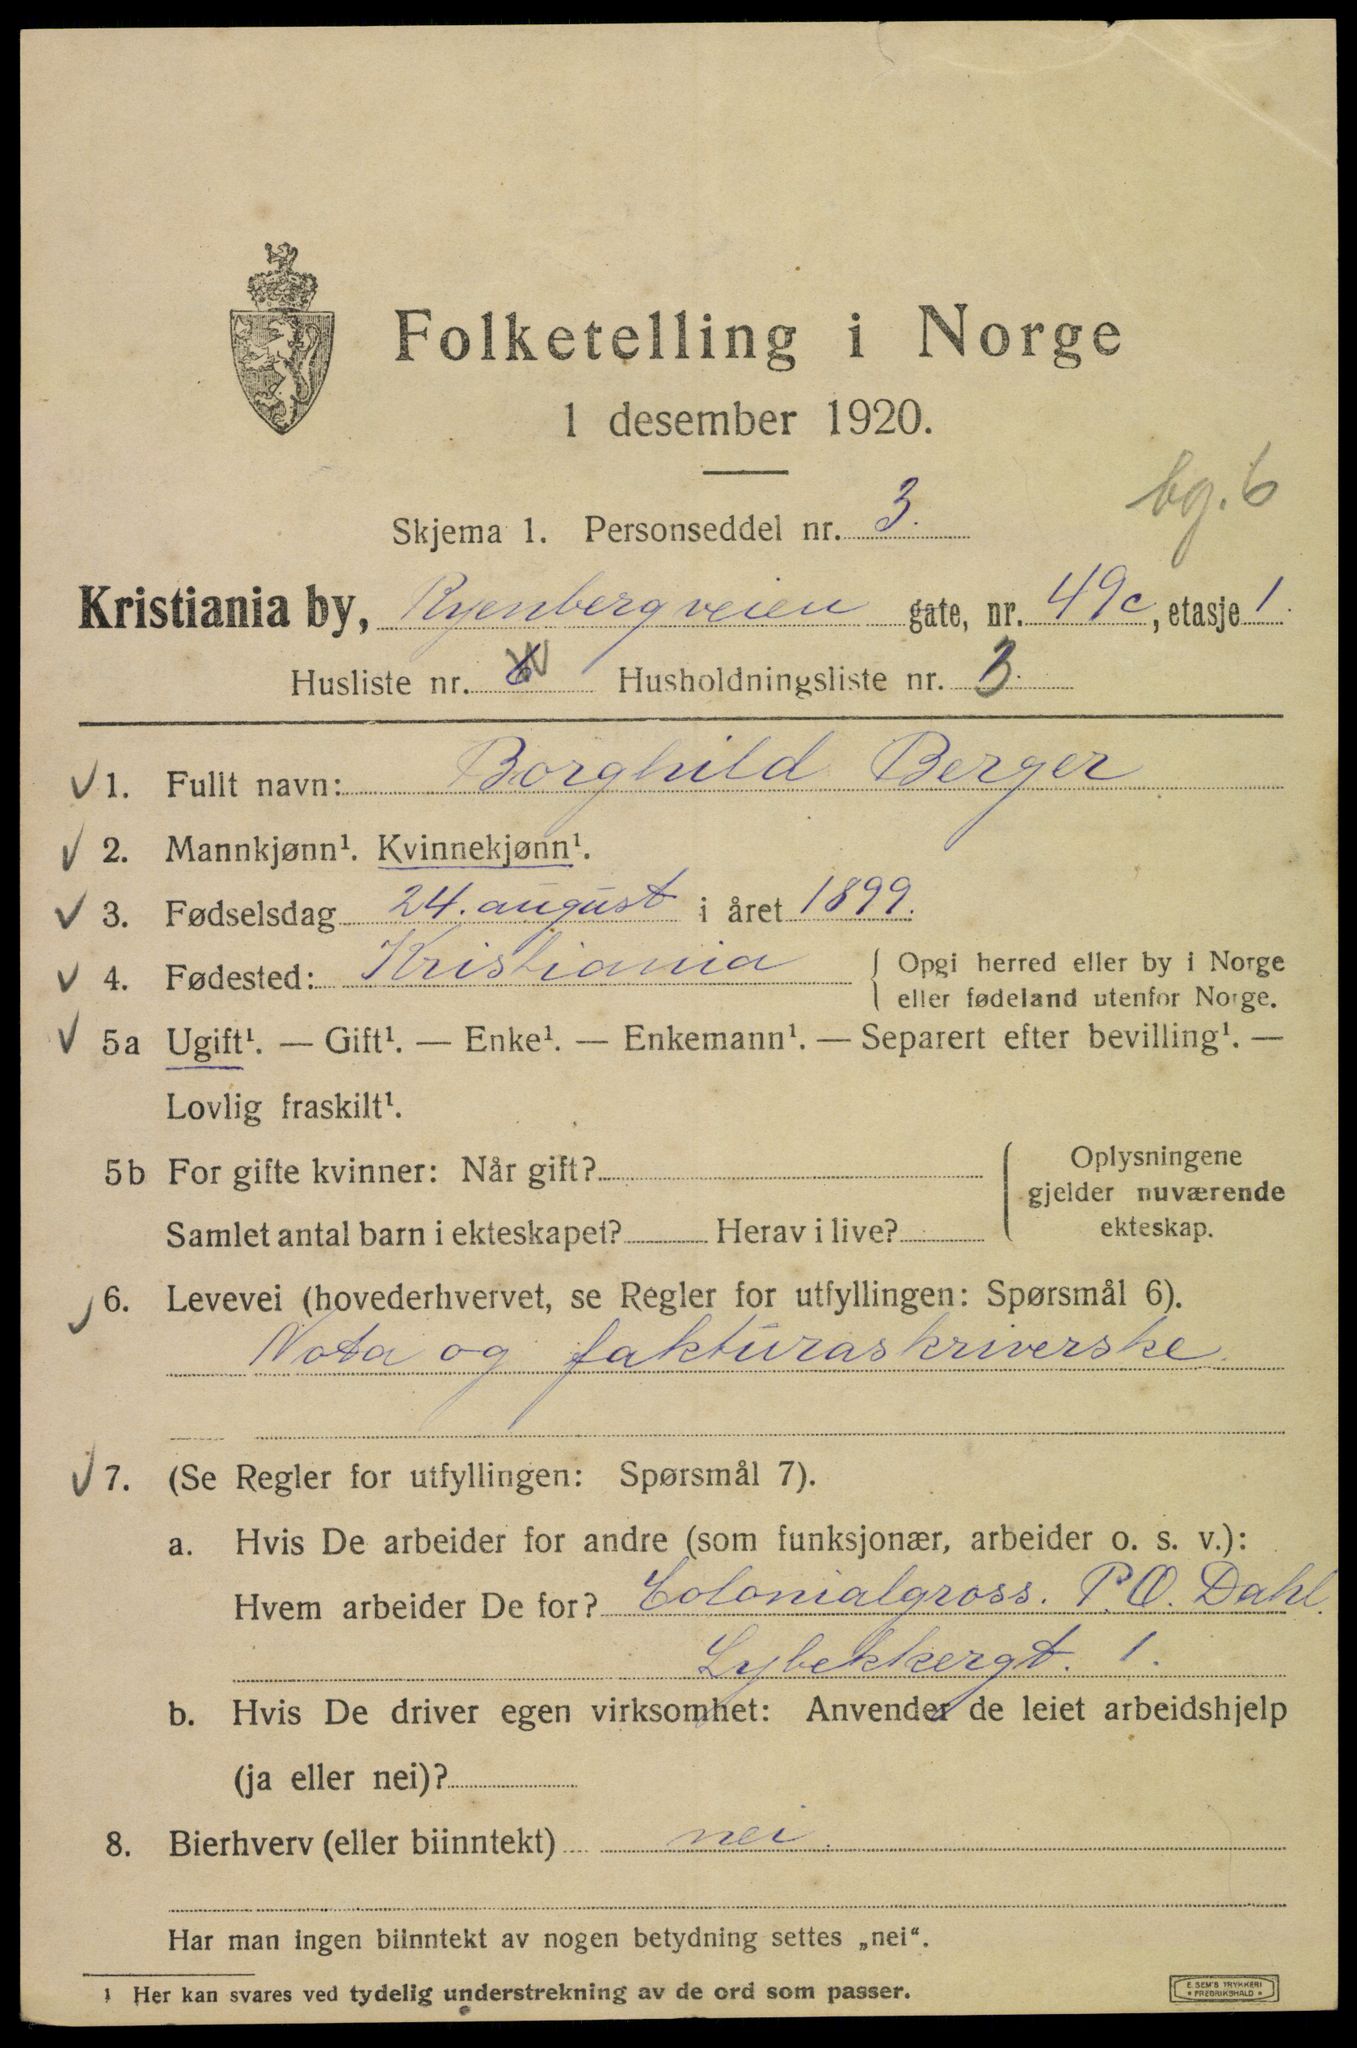 Folketelling i Norge
1 desember 1920.
bg. 6
Skjema 1. Personseddel nr. 3.
Kristiania by, Ryenbergveien gate, nr. 49c, etasje 1.
Husliste nr. 6 Husholdningsliste nr. 3.
1. Fullt navn: Borghild Berger
2. Mannkjønn¹. Kvinnekjønn¹.
3. Fødselsdag 24. august i året 1899.
4. Fødested: Kristiania { Opgi herred eller by i Norge
eller fødeland utenfor Norge.
5a Ugift¹. — Gift¹. — Enke¹. — Enkemann¹. — Separert efter bevilling¹. —
Lovlig fraskilt¹.
5b For gifte kvinner: Når gift? Oplysningene
gjelder nuværende
Samlet antal barn i ekteskapet? Herav i live? ekteskap.
6. Levevei (hovederhvervet, se Regler for utfyllingen: Spørsmål 6).
Nota og fakturaskriverske.
7. (Se Regler for utfyllingen: Spørsmål 7).
a. Hvis De arbeider for andre (som funksjonær, arbeider o. s. v.):
Hvem arbeider De for? Colonialgross. P. O. Dahl.
Lybekkergt. 1.
b. Hvis De driver egen virksomhet: Anvender de leiet arbeidshjelp
(ja eller nei)?
8. Bierhverv (eller biinntekt) nei.
Har man ingen biinntekt av nogen betydning settes „nei“.
1 Her kan svares ved tydelig understrekning av de ord som passer.
E. SEM'S TRYKKERI
• FREDRIKSHALD •